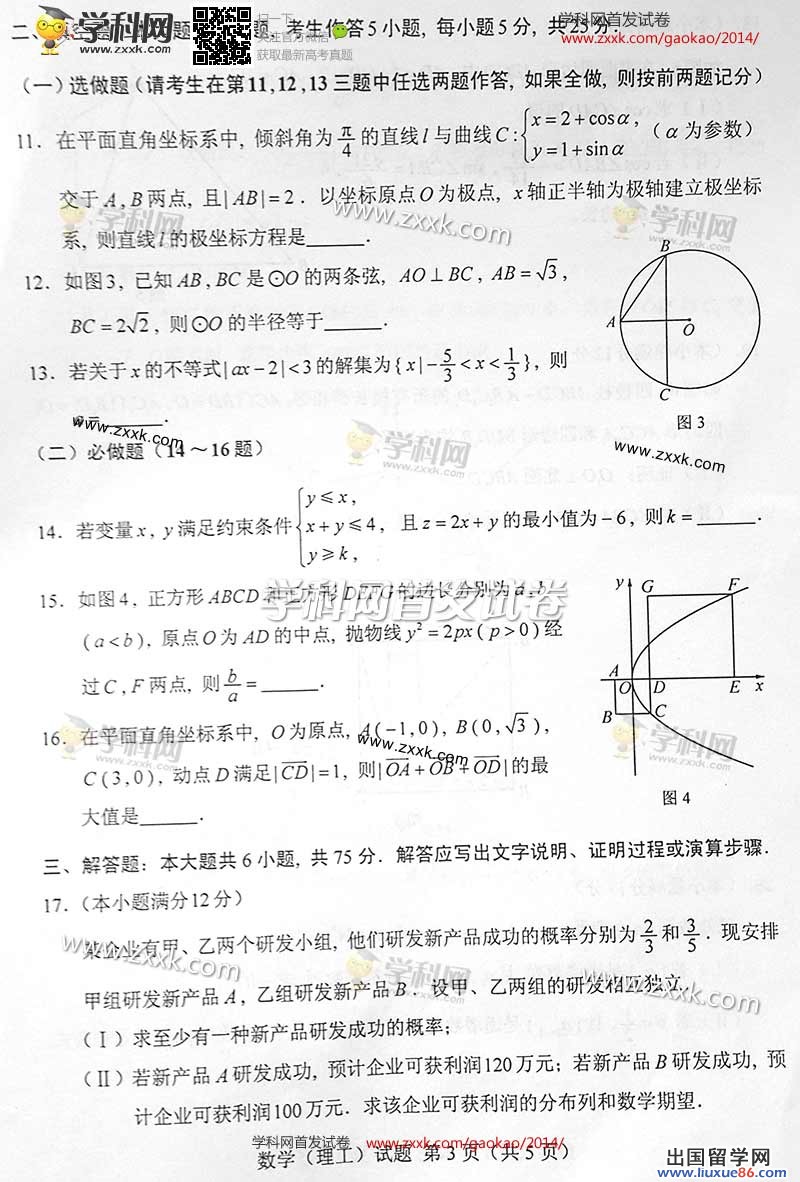 学科网首发试卷
www.zxxk.com/gaokao/2014/
扫一下
关注官方微信
获取最新高考真题
学科网
www.zxxk.com
二、题, 考生作答5小题, 每小题5分, 共25分.
(一)选做题(请考生在第11,12,13三题中任选两题作答, 如果全做, 则按前两题记分)
11. 在平面直角坐标系中, 倾斜角为π/4的直线l与曲线C:{x=2+cosα, y=1+sinα (α为参数)
交于A,B两点, 且|AB|=2. 以坐标原点O为极点, x轴正半轴为极轴建立极坐标
系, 则直线l的极坐标方程是______.
12. 如图3, 已知AB,BC是⊙O的两条弦, AO⊥BC, AB=√3,
BC=2√2, 则⊙O的半径等于______.
B
A
O
C
图3
13. 若关于x的不等式|ax-2|<3的解集为{x|-5/3<x<1/3}, 则
______.
www.zxxk.com
学科网
www.zxxk.com
(二)必做题(14~16题)
14. 若变量x, y满足约束条件{y≤x, x+y≤4, y≥k, 且z=2x+y的最小值为-6, 则k=______.
学科网首发试卷
15. 如图4, 正方形ABCD和正方形DEFG的边长分别为a,b
(a<b), 原点O为AD的中点, 抛物线y²=2px(p>0)经
过C,F两点, 则b/a=______.
y
G
F
A
O
D
E
x
B
C
图4
16. 在平面直角坐标系中, O为原点, A(-1,0), B(0,√3),
C(3,0), 动点D满足|CD|=1, 则|OA+OB+OD|的最
大值是______.
www.zxxk.com
学科网
三、解答题: 本大题共6小题, 共75分. 解答应写出文字说明、证明过程或演算步骤.
17. (本小题满分12分)
某企业有甲、乙两个研发小组, 他们研发新产品成功的概率分别为2/3和3/5. 现安排
甲组研发新产品A, 乙组研发新产品B. 设甲、乙两组的研发相互独立.
(Ⅰ)求至少有一种新产品研发成功的概率;
(Ⅱ)若新产品A研发成功, 预计企业可获利润120万元; 若新产品B研发成功, 预
计企业可获利润100万元. 求该企业可获利润的分布列和数学期望.
www.zxxk.com
学科网
www.zxxk.com
学科网首发试卷 www.zxxk.com/gaokao/2014/
数学(理工)试题 第3页(共5页)
出国留学网
www.liuxue86.com